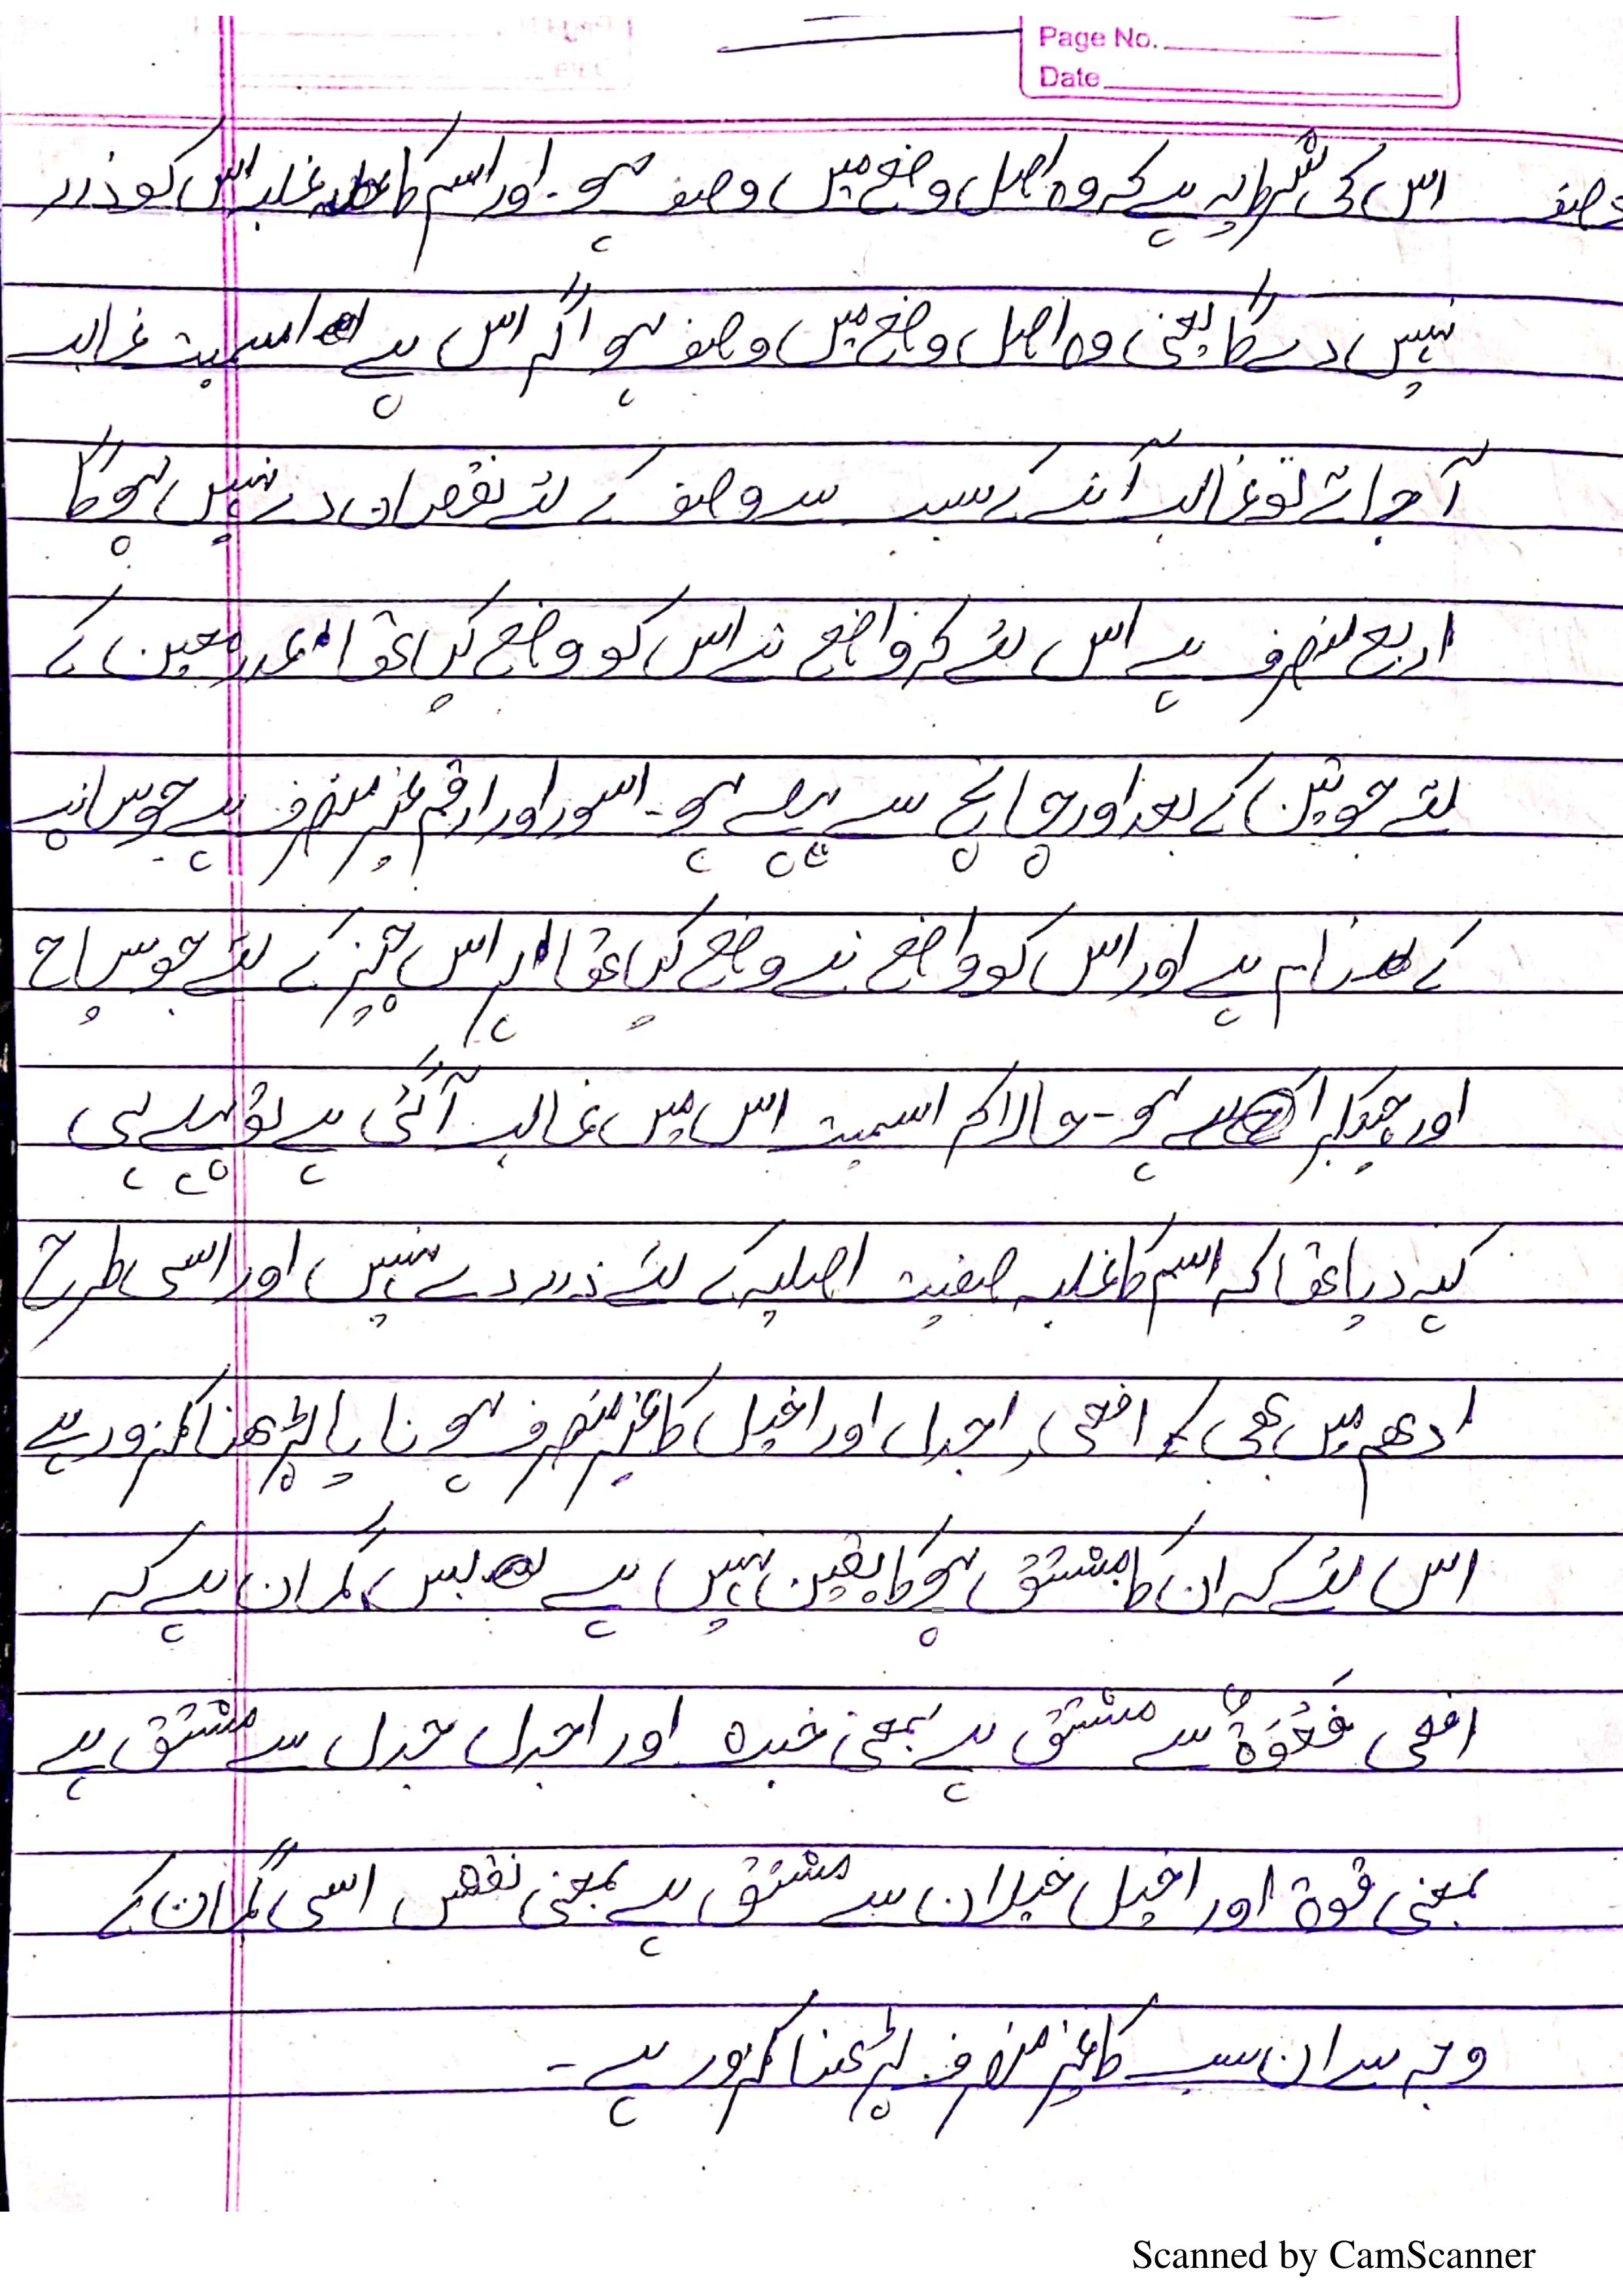 Page No.
Date
وصف اس کی شرط یہ ہے کہ وہ اصل وضع میں وصف ہو۔ اور اسم کا غلبہ اس کو ضرر
نہیں دے گا یعنی وہ اصل وضع میں وصف ہو اگر اس پے اسمیت غالب
آجائے تو غالب آنے کے سبب سے وصف کے لئے نقصان دے نہیں ہوگا
اربع منصرف ہے اس لئے کہ واضع نے اس کو وضع کیا تھا عدد معین کے
لئے جو تین کے بعد اور پانچ سے پہلے ہو۔ اسود اور ارقم غیر منصرف ہے جو سانپ
کے نام ہے اور اس کو واضع نے وضع کیا تھا ہر اس چیز کے لئے جو سیاہ
اور چتکبرا ہو۔ حالاکم اسمیت اس میں غالب آگئی ہے تو پہلے ہی
کہہ دیا تھا کہ اسم کا غلبہ صفیت اصلیہ کے لئے ضرر دے نہیں اور اسی طرح
ادھم میں بھی افعی، اجدل اور اخیل کا غیر منصرف ہونا یا پڑھنا کمزور ہے
اس لئے کہ ان کا مشتق ہوکا یقین نہیں ہے بس گمان ہے کہ
افعی فَعْوَةٌ سے مشتق ہے بمعنی خبث اور اجدل جدل سے مشتق ہے
بمعنی قوۃ اور اخیل خیلان سے مشتق ہے بمعنی نقص اسی گمان کے
وجہ سے ان سب کا غیر منصرف پڑھنا کمزور ہے۔
Scanned by CamScanner